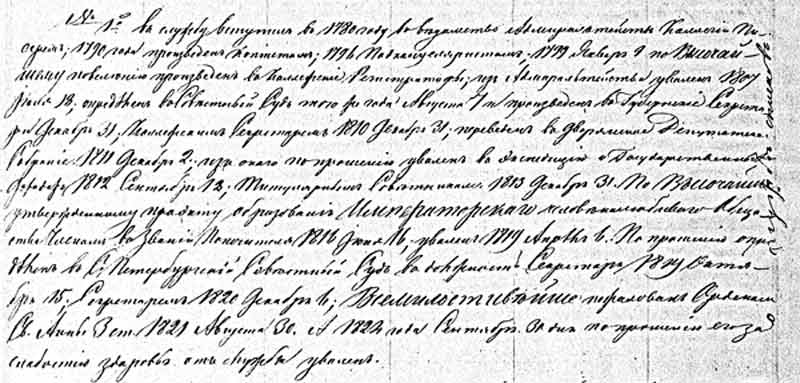 1º въ службу вступилъ въ 1780 году въ вѣдомство Адмиралтействъ Коллегіи Пи-
саремъ; 1790 года произведенъ Копіистомъ; 1796 Подканцеляристомъ; 1799 Января 9 по Высочай-
шему повелѣнію произведенъ въ Коллежскіе Регистраторы; изъ Адмиралтейства уволенъ 1807
Іюля 18, опредѣленъ въ Совѣстный Судъ того же года Августа 7 и произведенъ въ Губернскіе Секрета-
ри Декабря 31, Коллежскимъ Секретаремъ 1810 Декабря 31. переведенъ въ Дворянское Депутатское
Собраніе 1811 Декабря 2. изъ онаго по прошенію уволенъ въ Экспедицію о Государственныхъ
1812 Сентября 12, Титулярнымъ Совѣтникомъ 1813 Декабря 31. По Высочайше
утвержденному образованія Императорскаго человѣколюбиваго Обще-
ства Членомъ въ званіи Попечителя 1816 Іюня 16, уволенъ 1819 Апрѣля 6. По прошенію опре-
дѣленъ въ С. Петербургскій Совѣстный Судъ въ должность Секретаря 1819 Октя-
бря 15. Секретаремъ 1820 Декабря 6; Всемилостивѣйше пожалованъ Орденомъ
Св. Анны 3 ст. 1821 Августа 30. А 1824 года Сентября 30 дня по прошенію его за
слабостію здоровья отъ службы уволенъ.